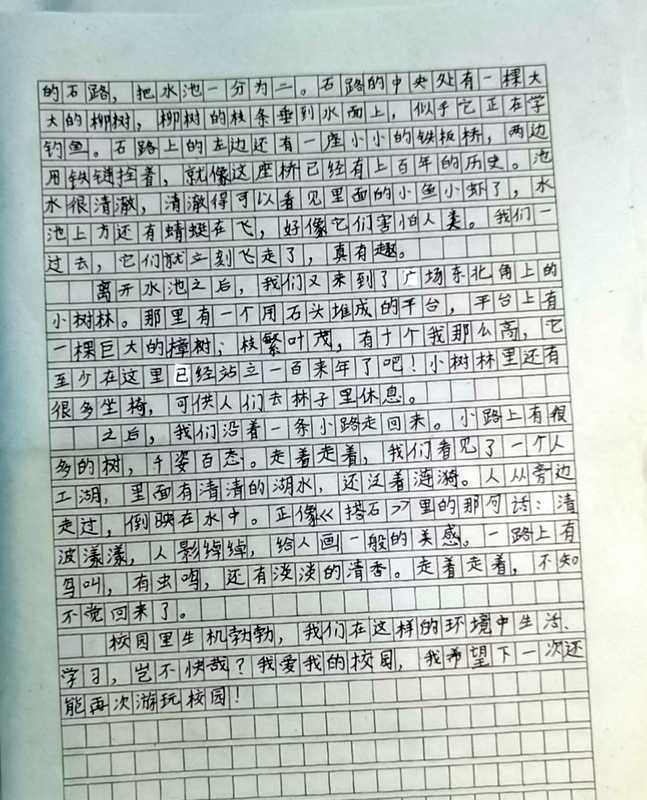 的石路，把水池一分为二。石路的中央处有一棵大
大的柳树，柳树的枝条垂到水面上，似乎它正在学
钓鱼。石路上的左边还有一座小小的铁板桥，两边
用铁链拴着，就像这座桥已经有上百年的历史。池
水很清澈，清澈得可以看见里面的小鱼小虾了，水
池上方还有蜻蜓在飞，好像它们害怕人类。我们一
过去，它们就立刻飞走了，真有趣。
离开水池之后，我们又来到了广场东北角上的
小树林。那里有一个用石头堆成的平台，平台上有
一棵巨大的樟树；枝繁叶茂，有十个我那么高，它
至少在这里已经站立一百来年了吧！小树林里还有
很多坐椅，可供人们去林子里休息。
之后，我们沿着一条小路走回来。小路上有很
多的树，千姿百态。走着走着，我们看见了一个人
工湖，里面有清清的湖水，还泛着涟漪。人从旁边
走过，倒映在水中。正像《搭石》里的那句话：清
波漾漾，人影绰绰，给人画一般的美感。一路上有
鸟叫，有虫鸣，还有淡淡的清香。走着走着，不知
不觉回来了。
校园里生机勃勃，我们在这样的环境中生活、
学习，岂不快哉？我爱我的校园，我希望下一次还
能再次游玩校园！